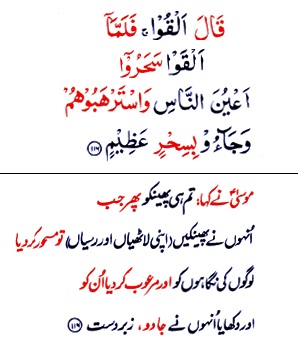 قَالَ اَلْقُوْا ۚ فَلَمَّآ
اَلْقَوْا سَحَرُوْۤا
اَعْیُنَ النَّاسِ وَاسْتَرْهَبُوْهُمْ
وَجَآءُوْ بِسِحْرٍ عَظِیْمٍ ﴿۱۱۶﴾
موسیٰؑ نے کہا؛ تم ہی پھینکو پھر جب
اُنہوں نے پھینکیں (اپنی لاٹھیاں اور رسیاں) تو مسحور کر دیا
لوگوں کی نگاہوں کو اور مرعوب کر دیا اُن کو
اور دکھایا اُنہوں نے جادو، زبردست ﴿۱۱۶﴾